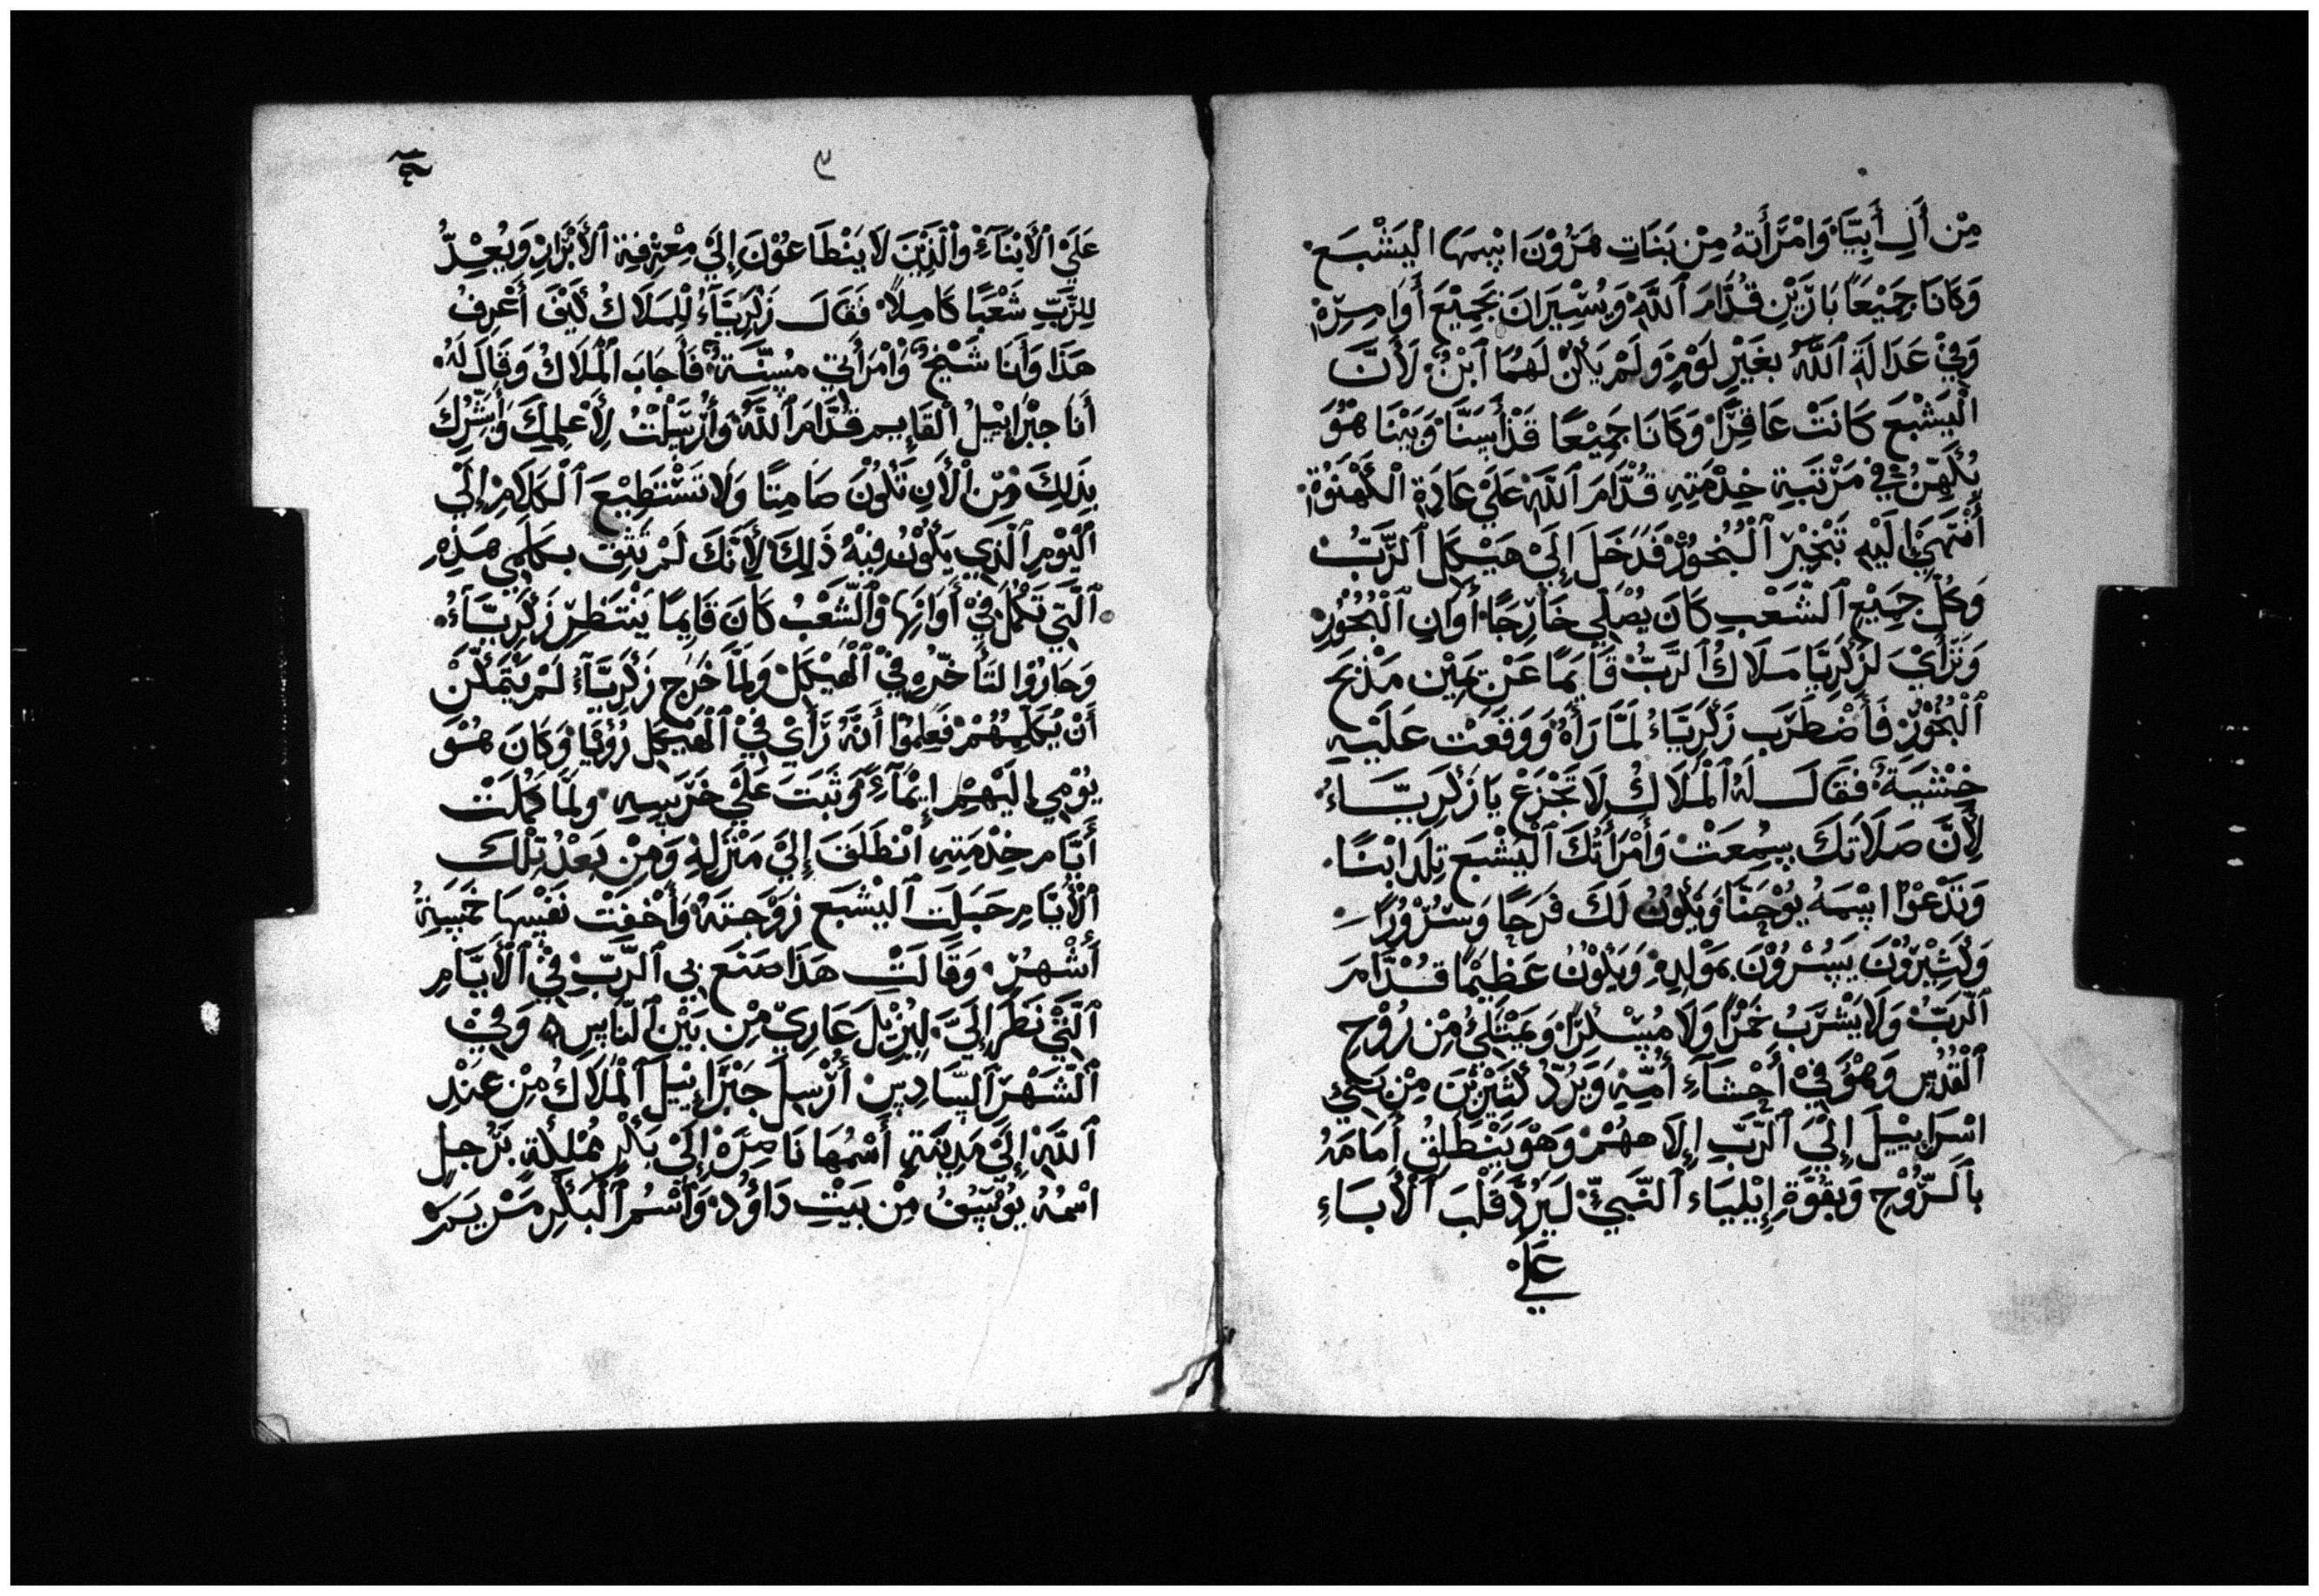 مِنْ أَلِ أَبِيَّا وَامْرَأَتهُ مِنْ بَنَاتِ هَرُوْنَ اِسْمهَا الْيَشْبَع
وَكَانَا جَمِيْعًا بَارَّيْنِ قُدَّامَ ٱللَّهِ وَيُسِيْرَانِ بَجِمِيْعِ أَوَامِرِهِ
وَفِيْ عَدَالَةِ ٱللَّهِ بِغَيْرِ لَوْمٍ وَلَمْ يَكُنْ لَهُمَا ٱبْنٌ لِأَنَّ
الْيَشْبَع كَانَتْ عَاقِرًا وَكَانَا جَمِيْعًا قَدْ أَسَنَّا وَبَيْنَا هُوَ
يُكَهِّنُ فِيْ مَرْتَبَةِ خِدْمَتِهِ قُدَّامَ ٱللَّهِ عَلَيْ عَادَةِ الْكَهْنَوُةْ
أَنْتَهَيْ إِلَيْهِ تَبْخِيْرَ ٱلْبُخُوْرِ فَدَخَلَ إِلَيْ هَيْكَلِ ٱلرَّبِّ
وَكُلُّ جَمِيْعِ ٱلشَّعْبِ كَانَ يُصْلِّي خَارِجًا أَوَانِ ٱلْبُخُوْرِ
وَتَرَأَيْ لِزَكَرِيَّا مَلَاكُ ٱلرَّبِّ قَايِمًا عَنْ يَمِيْنِ مَذْبَحِ
ٱلْبُخُوْرِ فَأَضْطَرَب زَكَرِيَّاءُ لَمَّا رَأَهُ وَوَقَعَتْ عَلَيْهِ
خِشْيَةٌ فَقَالَ لَهُ ٱلْمَلَاكُ لَا تَجْزَعْ يَا زَكَرِيَّاءُ
لِأَنَّ صَلَاتَكَ سُمِعَتْ وَأَمْرَأَتُكَ ٱلْيَشْبَع تِلَد ابْنًا
وَتَدْعُوْا اسْمَهُ يُوْحَنَّا وَيَكُوْنُ لَكَ فَرَحًا وَسُرُوْرًا
وَكَثِيْرُوْنَ يَسُرُوْنَ بِمَوْلِدِهِ وَيَكُوْنُ عَظِيْمًا قُدَّامَ
ٱلرَّبِّ وَلَا يَشْرَبُ خَمْرًا وَلَا مُسْكِرًا وَيَمْتَلِئُ مِنْ رُوْحِ
ٱلْقُدُسِ وَهُوَ فِيْ أَحْشَآءِ أُمِّهِ وَيَرُدُّ كَثِيْرِيْنَ مِنْ بَنِيْ
اسْرَايِيْلَ إِلَيْ ٱلرَّبِّ إِلَاهِهُمْ وَهُوَ يَنْطَلِقُ أَمَامَهُ
بِٱلرُّوْحِ وَبِقُوَّةِ إِيْلِيَاءَ ٱلنَّبِيِّ لِيَرُدَّ قَلْبَ ٱلْأَبَاءِ
عَلَيْ
٣
عَلَيْ ٱلْأَبْنَاءِ وَٱلَّذِيْنَ لَا يَنْطَاعُوْنَ إِلَيْ مِعْرِفِةِ ٱلْأَبْرَارِ وَيُعِدُّ
لِلرَّبِّ شَعْبًا كَامِلًا فَقَالَ زَكَرِيَّاءُ لِلْمَلَاكُ كَيْفَ أَعْرِفُ
هَذَا وَأَنَا شَيْخٌ وَامْرَأَتِي مُسِنَّةٌ فَأَجَابَ ٱلْمَلَاكُ وَقَالَ لَهُ
أَنَا جِبْرَائِيْلُ ٱلْقَايِم قُدَّامَ ٱللَّهِ وَأُرْسِلْتُ لِأُعْلِمَكَ وَأُبَشِّرُكَ
بِذَلِكَ وَمِنَ ٱلْأَنِ تَكُوْنُ صَامِتًا وَلَا تَسْتَطِيْعَ ٱلْكَلَامِ إِلَي
ٱلْيَوْمِ ٱلَّذِي يَكُوْنُ فِيْهِ ذَلِكَ لِأَنَّكَ لَمْ تَثِقْ بِكَلَامِي هَذِهِ
ٱلَّتِي تَكْمُلُ فِيْ أَوَانِهَا وَٱلشَّعْبُ كَانَ قَايِمًا يَنْتَظِر زَكَرِيَّاءُ
وَحَارُوْا لِتَأَخُّرِهِ فِيْ ٱلْهَيْكَلِ وَلَمَّا خَرَجَ زَكَرِيَّاءُ لَمْ يَتَمَكَّنْ
أَنْ يُكَلِّمَهُمْ فَعَلِمُوا أَنَّهُ رَأَي فِيْ ٱلْهَيْكَلِ رُؤْيَا وَكَانَ هُوَ
يُوْمِي إِلَيْهِمْ إِيْمَآءً وَثَبَتَ عَلَيْ خَرَسِهِ وَلَمَّا كَمُلَتْ
أَيَّام خِدْمَتِهِ انْطَلَقَ إِلَيْ مَنْزِلِهِ وَمِنْ بَعْدُ تِلْكَ
ٱلْأَيَّامِ حَبِلَتِ ٱلْيَشْبَع زَوْجَتهُ وَأَخْفَتْ نَفْسهَا خَمْسِةُ
أَشْهُرٍ وَقَالَتْ هَذَا صَنَعَ بِي ٱلرَّبِّ فِيْ ٱلْأَيَّامِ
ٱلَّتِيْ نَظَرَ إِلَيَّ لِيُزِيْلَ عَارِيْ مِنْ بَيْنِ ٱلنَّاسِ وَفِيْ
ٱلشَّهْرِ ٱلسَّادِسِ أُرْسِلَ جِبْرَائِيْلَ ٱلْمَلَاكُ مِنْ عِنْدِ
ٱللَّهِ إِلَيْ مَدِيْنَةٍ أَسْمُهَا نَاصِرَة إِلَيْ بِكْرٍ مُمْلَكَةٍ بِرَجُلٍ
اسْمُهُ يُوْسِفُ مِنْ بَيْتِ دَاوُدَ وَٱسْمُ ٱلْبِكْرِ مَرْيَم